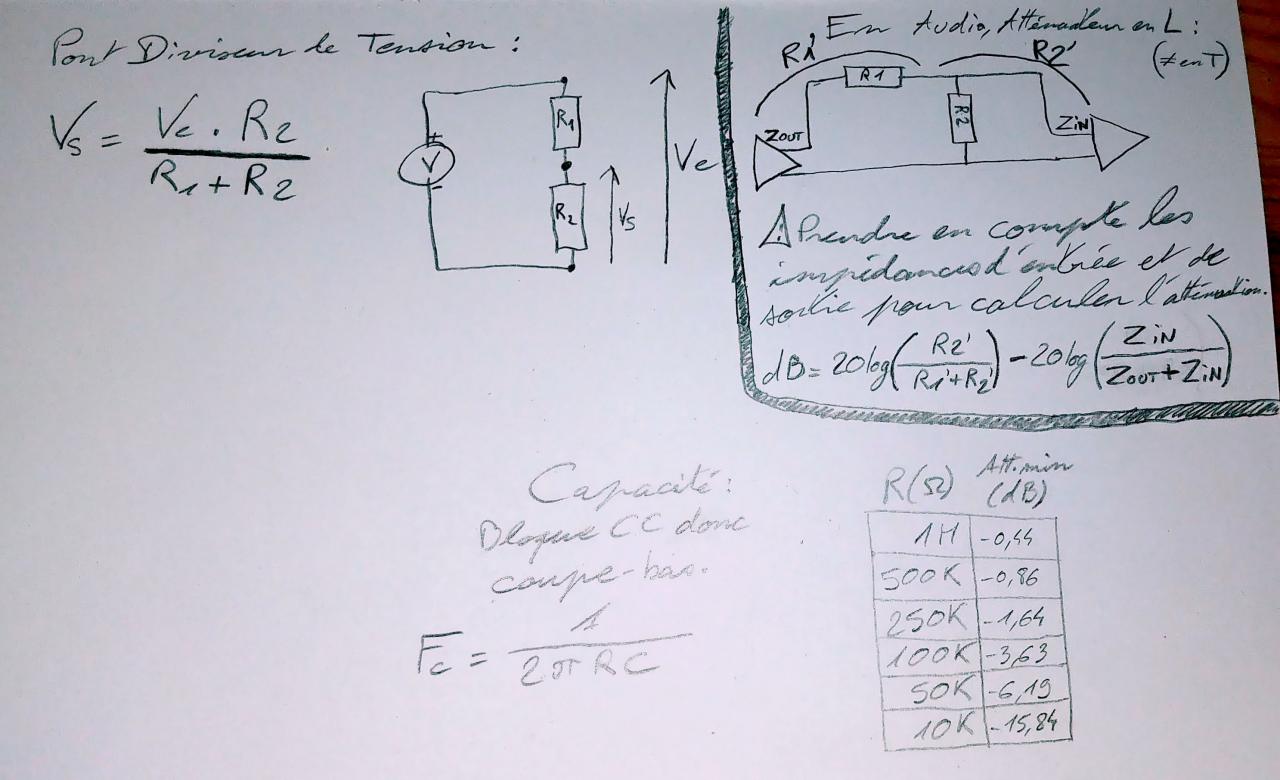 Pont Diviseur de Tension :
Vs = Ve . R2 / R1 + R2
V
+
-
R1
R2
Vs
Ve
En Audio, Atténuateur en L :
(≠ en T)
R1'
R2'
R1
R2
ZOUT
ZiN
⚠ Prendre en compte les
impédances d'entrée et de
sortie pour calculer l'atténuation.
dB = 20log(R2' / R1'+R2') - 20log(ZiN / ZOUT+ZiN)
Capacité :
Bloque CC donc
coupe-bas.
Fc = 1 / 2πRC
R(Ω) Att. min (dB)
1M -0,44
500K -0,86
250K -1,64
100K -3,63
50K -6,19
10K -15,84